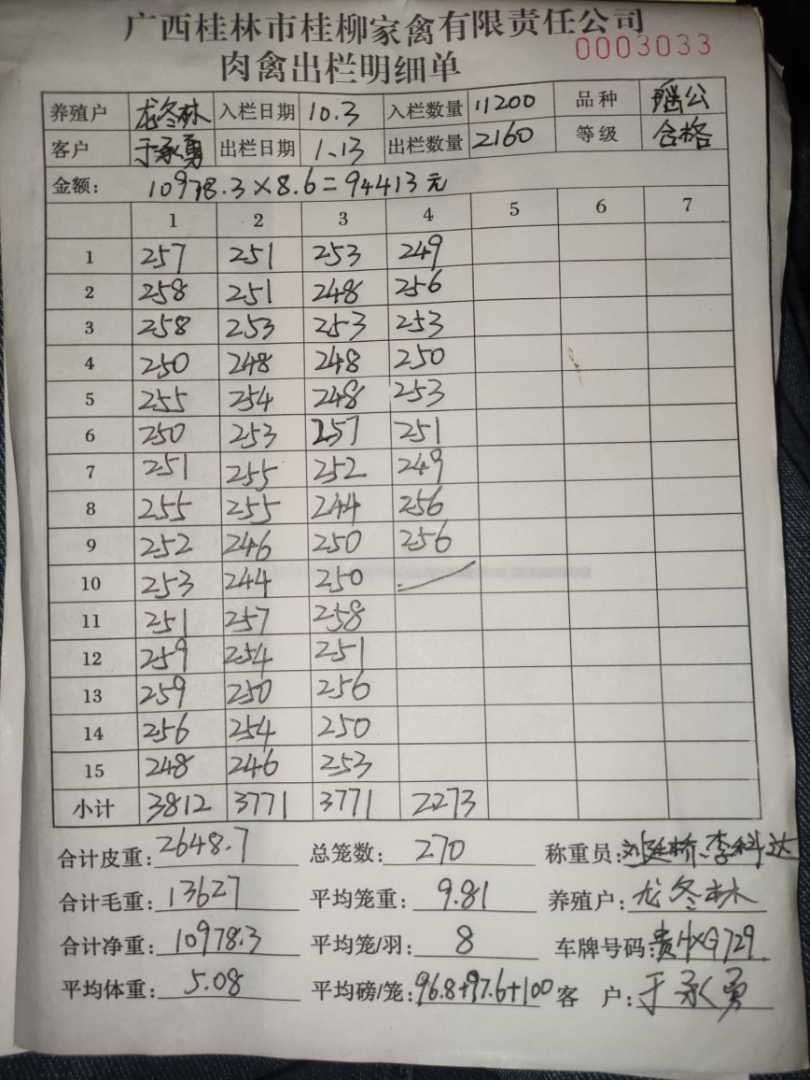 广西桂林市桂柳家禽有限责任公司
0003033
肉禽出栏明细单
养殖户 龙冬林 入栏日期 10.3 入栏数量 11200 品种 瑶公
客户 于承勇 出栏日期 1.13 出栏数量 2160 等级 合格
金额: 10978.3×8.6=94413元
1 2 3 4 5 6 7
1 257 251 253 249
2 258 251 248 256
3 258 253 253 253
4 250 248 248 250
5 255 254 248 253
6 250 253 257 251
7 251 255 252 249
8 255 255 244 256
9 252 246 250 256
10 253 244 250
11 251 257 258
12 259 254 251
13 259 250 256
14 256 254 250
15 248 246 253
小计 3812 3771 3771 2273
合计皮重: 2648.7 总笼数: 270 称重员: 刘廷桥.李科达
合计毛重: 13627 平均笼重: 9.81 养殖户: 龙冬林
合计净重: 10978.3 平均笼/羽: 8 车牌号码: 贵HXG729
平均体重: 5.08 平均磅/笼: 96.8+97.6+100 客 户: 于承勇